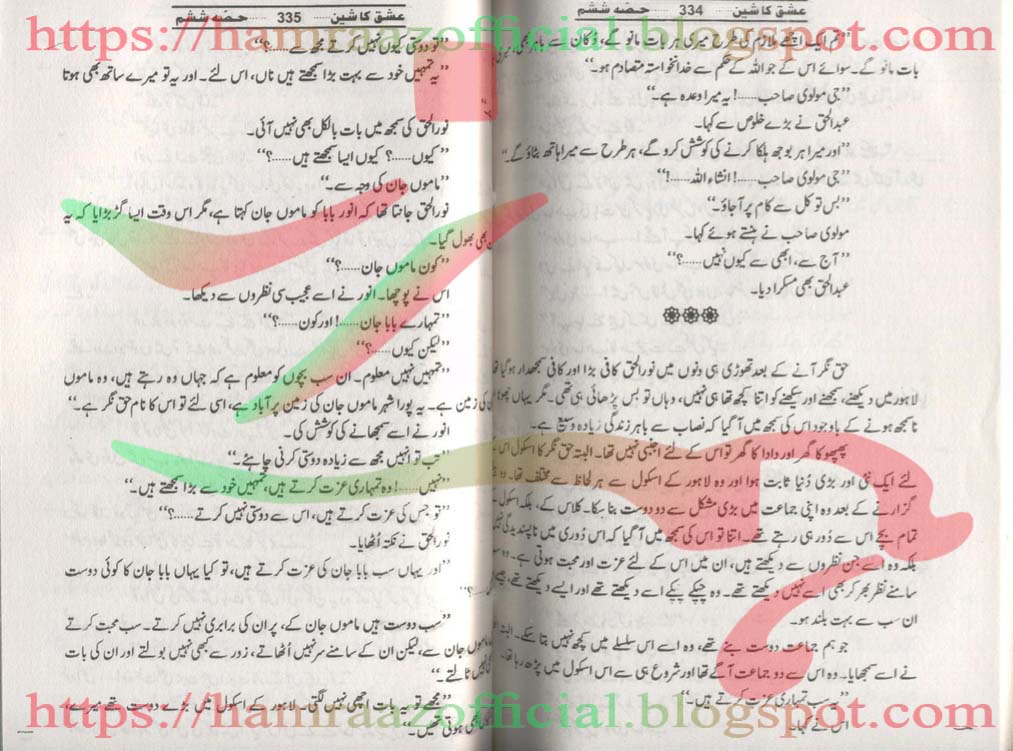 https://hamraazofficial.blogspot.com
عشق کا شین ........ 334 ........ حصّہ ششم
"تم ایک اچھے ملازم کی طرح میری ہر بات مانو گے، دُکان سے باہر بھی میری
بات مانو گے۔ سوائے اس کے جو اللہ کے حکم سے خدانخواستہ متصادم ہو۔"
"جی مولوی صاحب......! یہ میرا وعدہ ہے۔"
عبدالحق نے بڑے خلوص سے کہا۔
"اور میرا ہر بوجھ ہلکا کرنے کی کوشش کرو گے، ہر طرح سے میرا ہاتھ بٹاؤ گے۔"
"جی مولوی صاحب......! انشاء اللہ......!"
"بس تو کل سے کام پر آجاؤ۔"
مولوی صاحب نے ہنستے ہوئے کہا۔
"آج سے، ابھی سے کیوں نہیں......؟"
عبدالحق بھی مسکرا دیا۔
حق نگر آنے کے بعد تھوڑی ہی دنوں میں نورالحق کافی بڑا اور کافی سمجھدار ہوگیا تھا
لاہور میں دیکھنے، سمجھنے اور سیکھنے کو اتنا کچھ تھا ہی نہیں، وہاں تو بس پڑھائی ہی تھی۔ مگر یہاں چھوٹا
ناسمجھ ہونے کے باوجود اس کی سمجھ میں آگیا کہ نصاب سے باہر زندگی زیادہ وسیع ہے۔
پھپھو کا گھر اور دادا کا گھر تو اس کے لئے اجنبی نہیں تھا۔ البتہ حق نگر کا اسکول اس
لئے ایک نئی اور بڑی دُنیا ثابت ہوا اور وہ لاہور کے اسکول سے ہر لحاظ سے مختلف تھا۔ دو
گزارنے کے بعد وہ اپنی جماعت میں بڑی مشکل سے دو دوست بنا سکا۔ کلاس کے، بلکہ اسکول
تمام بچے اس سے دور ہی رہتے تھے۔ اتنا تو اس کی سمجھ میں آگیا کہ اس دُوری میں ناپسندیدگی نہیں
بلکہ وہ اسے جن نظروں سے دیکھتے ہیں، ان میں اس کے لئے عزت اور محبت ہوتی ہے۔ وہ
سامنے نظر بھر کر بھی اسے نہیں دیکھتے تھے۔ وہ چپکے چپکے اسے دیکھتے تھے اور ایسے دیکھتے تھے، جیسے
ان سب سے بہت بلند ہو۔
جو ہم جماعت دوست بنے تھے، وہ اسے اس سلسلے میں کچھ نہیں بتا سکے۔ البتہ
نے اسے سمجھایا۔ وہ اس سے دو جماعت آگے تھا اور شروع ہی سے اس اسکول میں پڑھ رہا تھا۔
"یہ سب تمہاری عزت کرتے ہیں۔"
اس نے کہا۔
عشق کا شین ........ 335 ........ حصّہ ششم
"تو دوستی کیوں نہیں کرتے مجھ سے......؟"
"یہ تمہیں خود سے بہت بڑا سمجھتے ہیں ناں، اس لئے۔ اور یہ تو میرے ساتھ بھی ہوتا
نورالحق کی سمجھ میں بات بالکل بھی نہیں آئی۔
"کیوں......؟ کیوں ایسا سمجھتے ہیں......؟"
"ماموں جان کی وجہ سے۔"
نورالحق جانتا تھا کہ انور بابا کو ماموں جان کہتا ہے، مگر اس وقت ایسا گڑبڑایا کہ یہ
بھی بھول گیا۔
"کون ماموں جان......؟"
اس نے پوچھا۔ انور نے اسے عجیب سی نظروں سے دیکھا۔
"تمہارے بابا جان......! اور کون......؟"
"لیکن کیوں......؟"
"تمہیں نہیں معلوم۔ ان سب بچوں کو معلوم ہے کہ جہاں وہ رہتے ہیں، وہ ماموں
کی زمین ہے۔ یہ پورا شہر ماموں جان کی زمین پر آباد ہے، اسی لئے تو اس کا نام حق نگر ہے۔"
انور نے اسے سمجھانے کی کوشش کی۔
"تب تو انہیں مجھ سے زیادہ دوستی کرنی چاہئے۔"
"نہیں......! وہ تمہاری عزت کرتے ہیں، تمہیں خود سے بڑا سمجھتے ہیں۔"
"تو جس کی عزت کرتے ہیں، اس سے دوستی نہیں کرتے......؟"
نورالحق نے نکتہ اُٹھایا۔
"اور یہاں سب بابا جان کی عزت کرتے ہیں، تو کیا یہاں بابا جان کا کوئی دوست
......؟"
"سب دوست ہیں ماموں جان کے، پر ان کی برابری نہیں کرتے۔ سب محبت کرتے
ماموں جان سے، لیکن ان کے سامنے سر نہیں اُٹھاتے، زور سے بھی نہیں بولتے اور ان کی بات
نہیں ٹالتے۔"
"مجھے تو یہ بات اچھی نہیں لگتی۔ لاہور کے اسکول میں بڑے دوست تھے میرے،
بھی ہوتی تھیں۔
https://hamraazofficial.blogspot.com